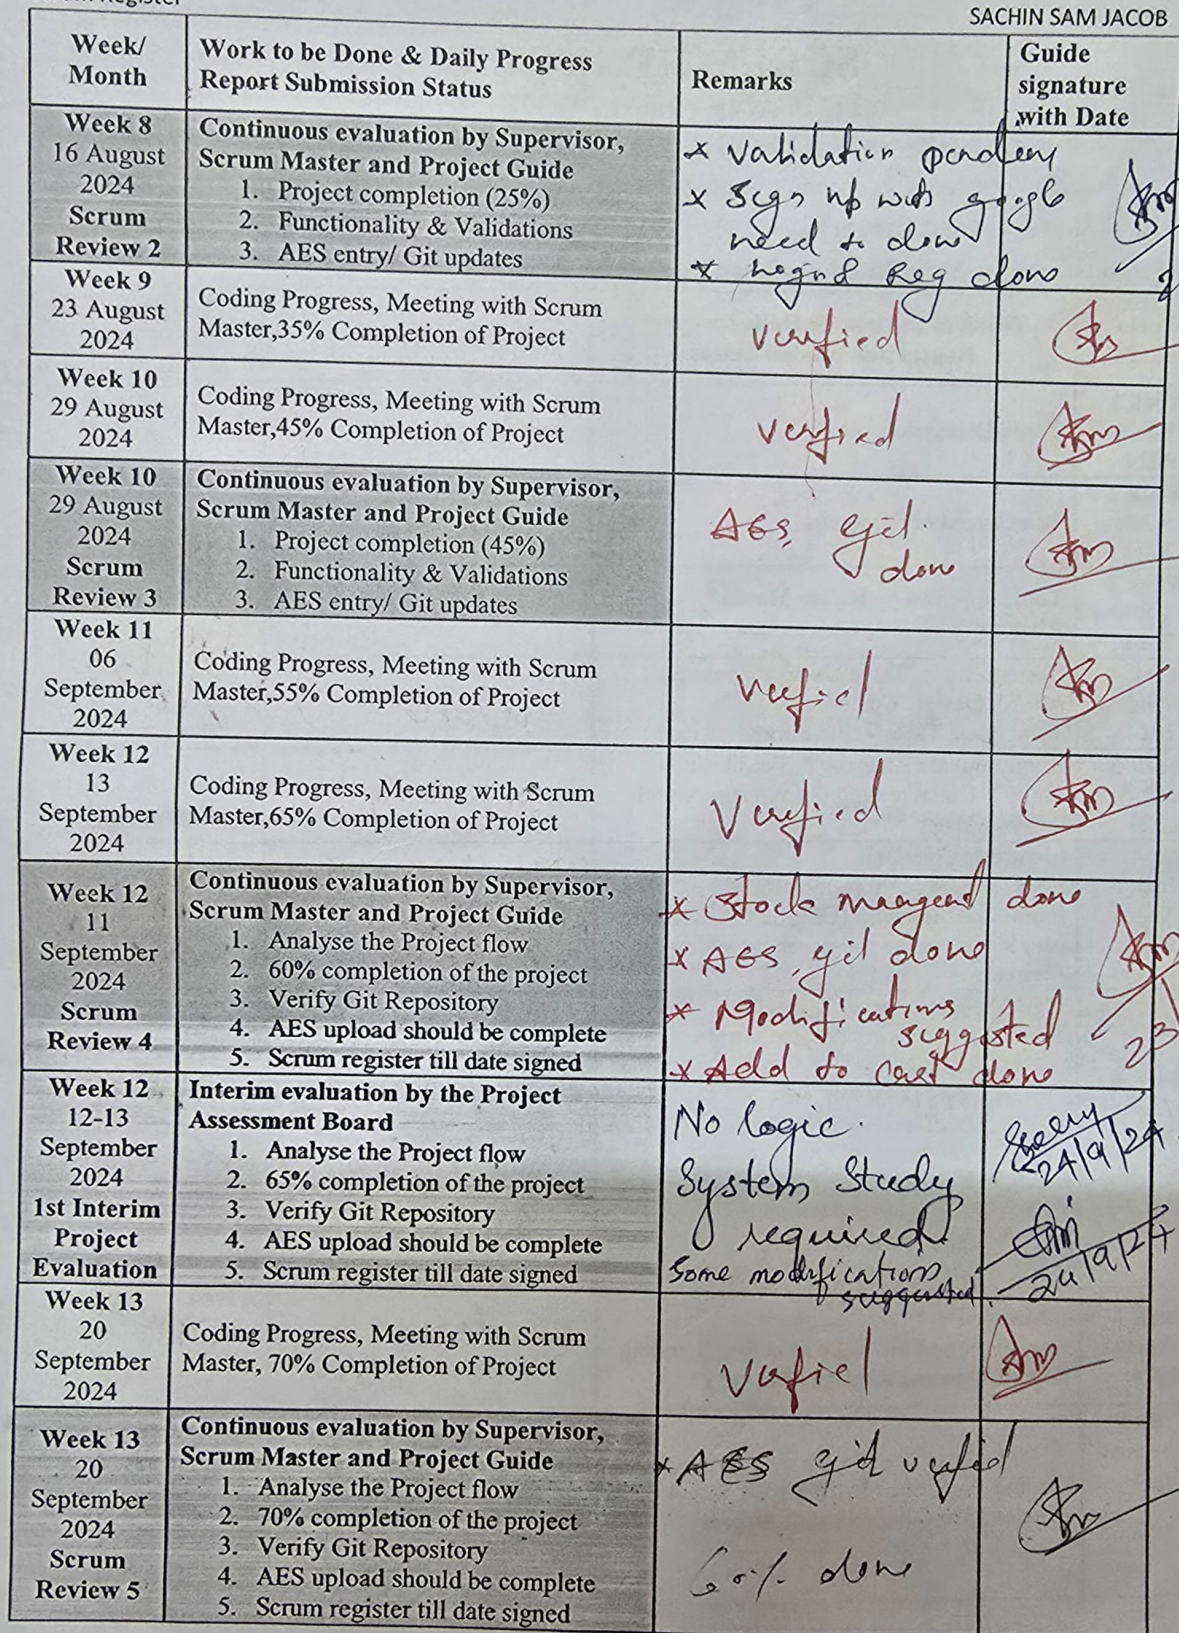 Register
SACHIN SAM JACOB
Week/
Month
Work to be Done & Daily Progress
Report Submission Status
Remarks
Guide
signature
with Date
Week 8
16 August
2024
Scrum
Review 2
Continuous evaluation by Supervisor,
Scrum Master and Project Guide
1. Project completion (25%)
2. Functionality & Validations
3. AES entry/ Git updates
* Validation pending
* Sign up with google
need to done
* Login & Reg done
Week 9
23 August
2024
Coding Progress, Meeting with Scrum
Master,35% Completion of Project
verified
Week 10
29 August
2024
Coding Progress, Meeting with Scrum
Master,45% Completion of Project
verified
Week 10
29 August
2024
Scrum
Review 3
Continuous evaluation by Supervisor,
Scrum Master and Project Guide
1. Project completion (45%)
2. Functionality & Validations
3. AES entry/ Git updates
AES, git
done
Week 11
06
September
2024
Coding Progress, Meeting with Scrum
Master,55% Completion of Project
verified
Week 12
13
September
2024
Coding Progress, Meeting with Scrum
Master,65% Completion of Project
Verified
Week 12
11
September
2024
Scrum
Review 4
Continuous evaluation by Supervisor,
Scrum Master and Project Guide
1. Analyse the Project flow
2. 60% completion of the project
3. Verify Git Repository
4. AES upload should be complete
5. Scrum register till date signed
* Stock management done
* AES, git done
* Modifications
suggested
* Add to cart done
23
Week 12
12-13
September
2024
1st Interim
Project
Evaluation
Interim evaluation by the Project
Assessment Board
1. Analyse the Project flow
2. 65% completion of the project
3. Verify Git Repository
4. AES upload should be complete
5. Scrum register till date signed
No logic.
System Study
required
Some modifications
suggested.
24/9/24
24/9/24
Week 13
20
September
2024
Coding Progress, Meeting with Scrum
Master, 70% Completion of Project
Verified
Week 13
20
September
2024
Scrum
Review 5
Continuous evaluation by Supervisor,
Scrum Master and Project Guide
1. Analyse the Project flow
2. 70% completion of the project
3. Verify Git Repository
4. AES upload should be complete
5. Scrum register till date signed
* AES git verified
60% done